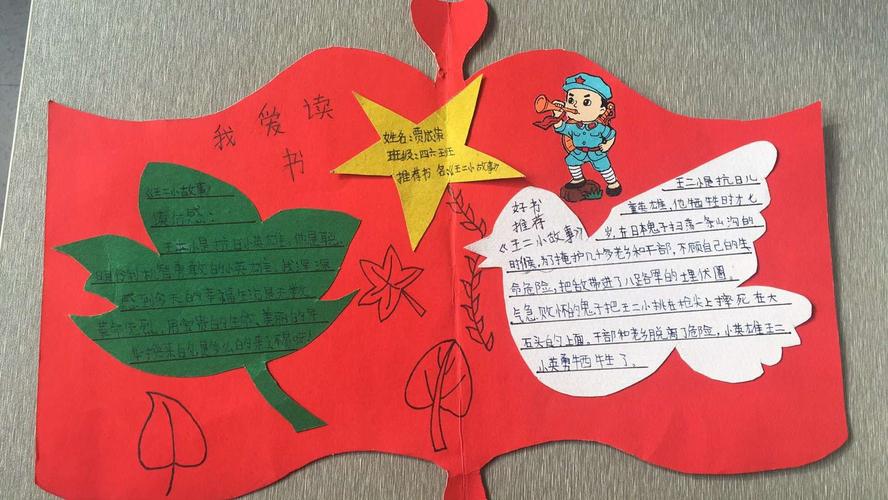 我爱读
书
姓名:贾依依
班级:四六班
推荐书名:《王二小故事》
《王二小故事》
读后感:
王二小是抗日小英雄,他是聪
明伶俐机智勇敢的小英雄,我深深
感到今天的幸福生活是无数
革命先烈,用
换来的
好书
推荐
《王二小故事》
王二小是抗日儿
童英雄,他牺牲时才九
岁,在日本鬼子扫荡一条山沟的
时候,为了掩护几十多老乡和干部,不顾自己的生
命危险,把敌带进了八路军的埋伏圈。
气急败怀的鬼子把王二小挑在枪尖上摔死在大
石头的上面。干部和老乡脱离了危险,小英雄王二
小英勇牺牲了。